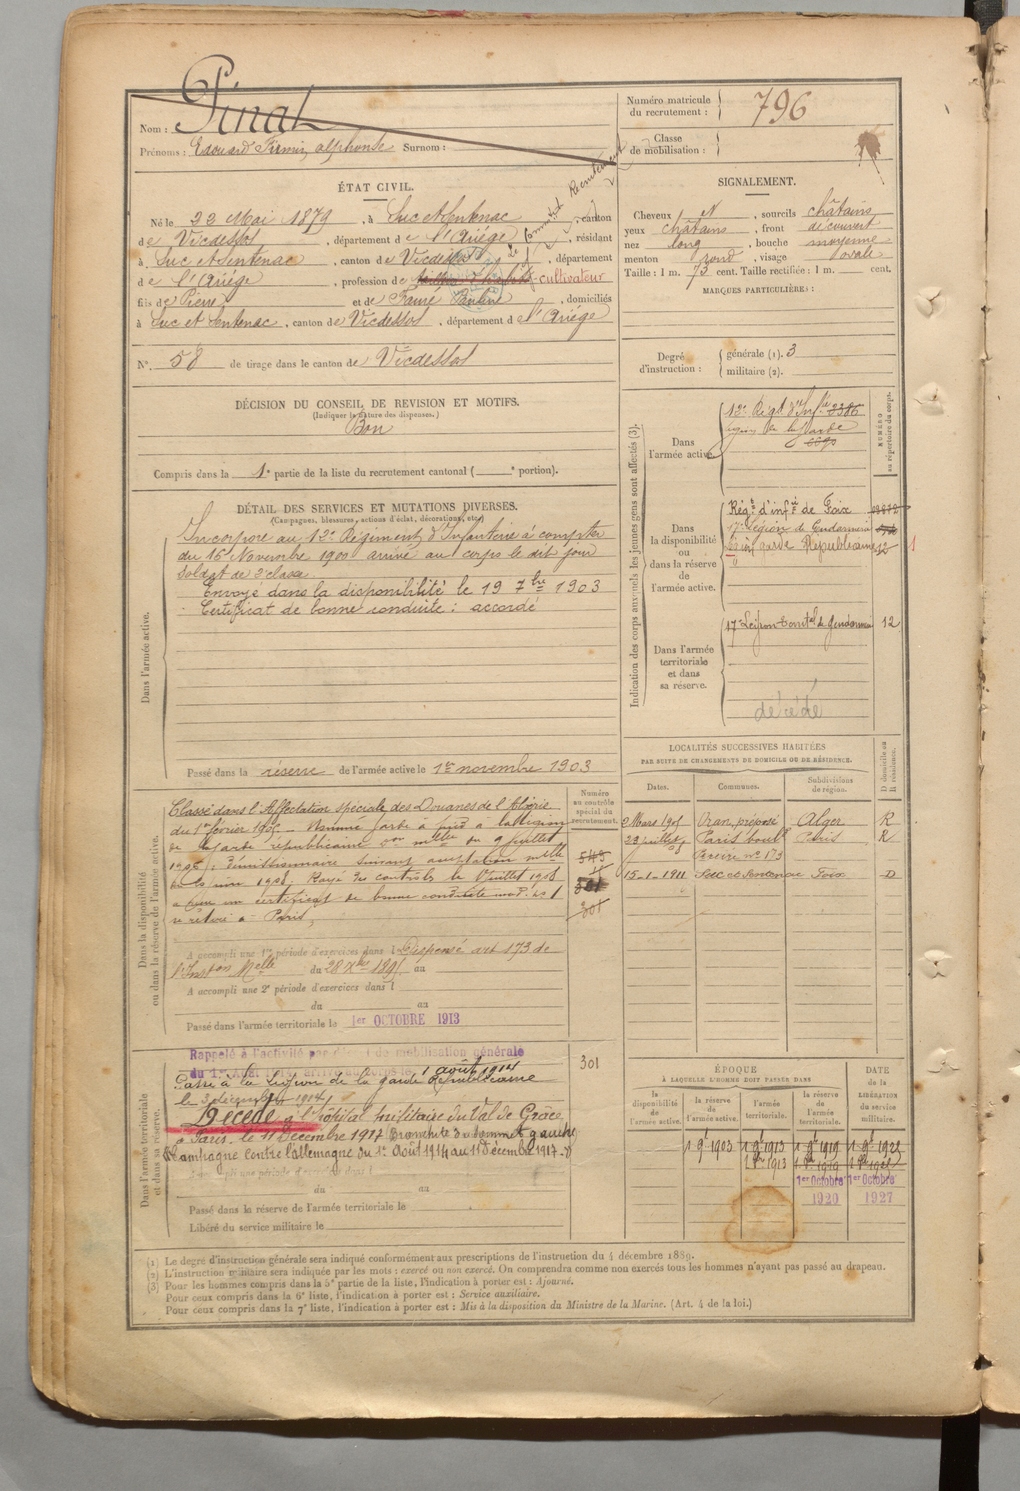 Nom : Pinat
Prénoms : Edouard Firmin, alphonse Surnom :
Numéro matricule du recrutement : 796
Classe de mobilisation :
ÉTAT CIVIL.
Né le 22 Mai 1879, à Suc et Sentenac, canton
de Vicdessos, département de l'Ariège, résidant
à Suc et Sentenac, canton de Vicdessos, département
de l'Ariège, profession de cultivateur
fils de Pierre et de Pauline, domiciliés
à Suc et Sentenac, canton de Vicdessos, département de l'Ariège
N° 58 de tirage dans le canton de Vicdessos
SIGNALEMENT.
Cheveux et, sourcils châtains
yeux châtains, front découvert
nez long, bouche moyenne
menton rond, visage ovale
Taille : 1 m. 73 cent. Taille rectifiée : 1 m. cent.
MARQUES PARTICULIÈRES :
Degré d'instruction : générale (1). 3
militaire (2).
DÉCISION DU CONSEIL DE REVISION ET MOTIFS.
(Indiquer la nature des dispenses.)
Bon
Compris dans la 1e partie de la liste du recrutement cantonal ( e portion).
DÉTAIL DES SERVICES ET MUTATIONS DIVERSES.
(Campagnes, blessures, actions d'éclat, décorations, etc.)
Dans l'armée active.
Incorporé au 12e Régiment d'Infanterie à compter
du 16 Novembre 1900 arrivé au corps le dit jour
Soldat de 2e classe.
Envoyé dans la disponibilité le 19 7bre 1903
Certificat de bonne conduite : accordé
Passé dans la réserve de l'armée active le 1er novembre 1903
Indication des corps auxquels les jeunes gens sont affectés (3).
NUMÉRO au répertoire du corps.
Dans l'armée active.
12e Régt d'Infie 2386
légion de la garde
Dans la disponibilité ou dans la réserve de l'armée active.
Régt d'infie de Foix
17e Légion de Gendarmerie
garde Républicaine
Dans l'armée territoriale et dans sa réserve.
17 Légion territ de Gendarmerie 12
décédé
Dans la disponibilité ou dans la réserve de l'armée active.
Numéro au contrôle spécial du recrutement.
Classé dans l'Affectation spéciale des Douanes de l'Algérie
du 1er février 1905 Nommé garde à pied à la légion
de la garde républicaine
1908. Rayé des contrôles le
certificat de bonne conduite
se retire à Paris
549
301
301
A accompli une 1re période d'exercices dans l Dispensé art 173 de
l'Inston Melle du 28 Xbre 1895 au
A accompli une 2e période d'exercices dans l
du au
Passé dans l'armée territoriale le 1er OCTOBRE 1913
LOCALITÉS SUCCESSIVES HABITÉES
PAR SUITE DE CHANGEMENTS DE DOMICILE OU DE RÉSIDENCE.
Dates. Communes. Subdivisions de région. D domicile ou R résidence.
2 Mars 1905 Oran, préposé Alger R
29 juillet Paris boul Paris R
n° 173
15-1-1911 Suc et Sentenac Foix D
Dans l'armée territoriale et dans sa réserve.
Rappelé à l'activité par décret de mobilisation générale
du 1er Août 1914 1 août 1914
Passé à la Légion de la garde Républicaine
le 3 décembre 1914
Décédé à l'hôpital militaire du Val de Grâce
à Paris, le 11 Décembre 1917 Bronchite du sommet gauche
Campagne contre l'allemagne du 1er Août 1914 au 11 Décembre 1917
301
du au
Passé dans la réserve de l'armée territoriale le
Libéré du service militaire le
ÉPOQUE
À LAQUELLE L'HOMME DOIT PASSER DANS
DATE de la LIBÉRATION du service militaire.
la disponibilité de l'armée active.
la réserve de l'armée active.
l'armée territoriale.
la réserve de l'armée territoriale.
1 9e 1903 1 9e 1913 1 9e 1919 1 9e 1922
1er Octobre 1er Octobre
1920 1927
(1) Le degré d'instruction générale sera indiqué conformément aux prescriptions de l'instruction du 4 décembre 1889.
(2) L'instruction militaire sera indiquée par les mots : exercé ou non exercé. On comprendra comme non exercés tous les hommes n'ayant pas passé au drapeau.
(3) Pour les hommes compris dans la 5e partie de la liste, l'indication à porter est : Ajourné.
Pour ceux compris dans la 6e liste, l'indication à porter est : Service auxiliaire.
Pour ceux compris dans la 7e liste, l'indication à porter est : Mis à la disposition du Ministre de la Marine. (Art. 4 de la loi.)